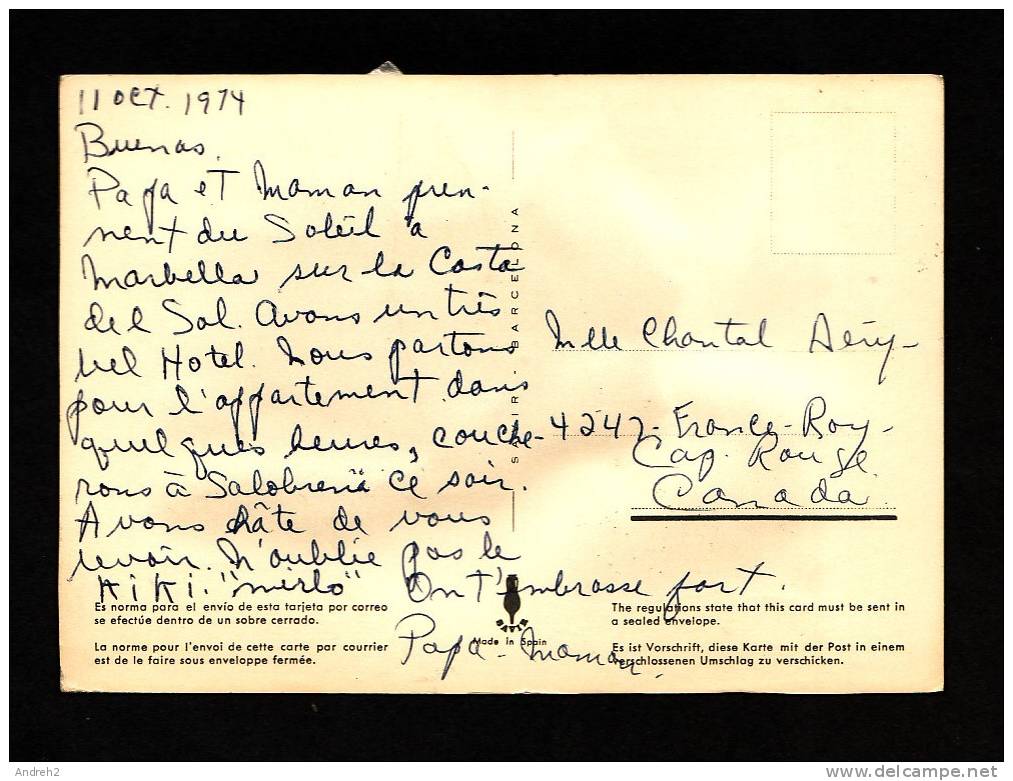 11 OCT. 1974
Buenas.
Papa et Maman pren-
nent du Soleil à
Marbella sur la Costa
del Sol. Avons un très
bel Hotel. Nous partons
pour l'appartement dans
quelques heures, couche-
rons à Salobrena ce soir.
Avons hâte de vous
revoir. N'oublie pas le
KiKi. "mirlo" On t'embrasse fort.
Papa - Maman.
Mlle Chantal
4247, France-Roy-
Cap. Rouge
Canada
BARCELONA
Es norma para el envío de esta tarjeta por correo
se efectúe dentro de un sobre cerrado.
La norme pour l'envoi de cette carte par courrier
est de le faire sous enveloppe fermée.
Made in Spain
The regulations state that this card must be sent in
a sealed envelope.
Es ist Vorschrift, diese Karte mit der Post in einem
verschlossenen Umschlag zu verschicken.
Andreh2
delcampe.net